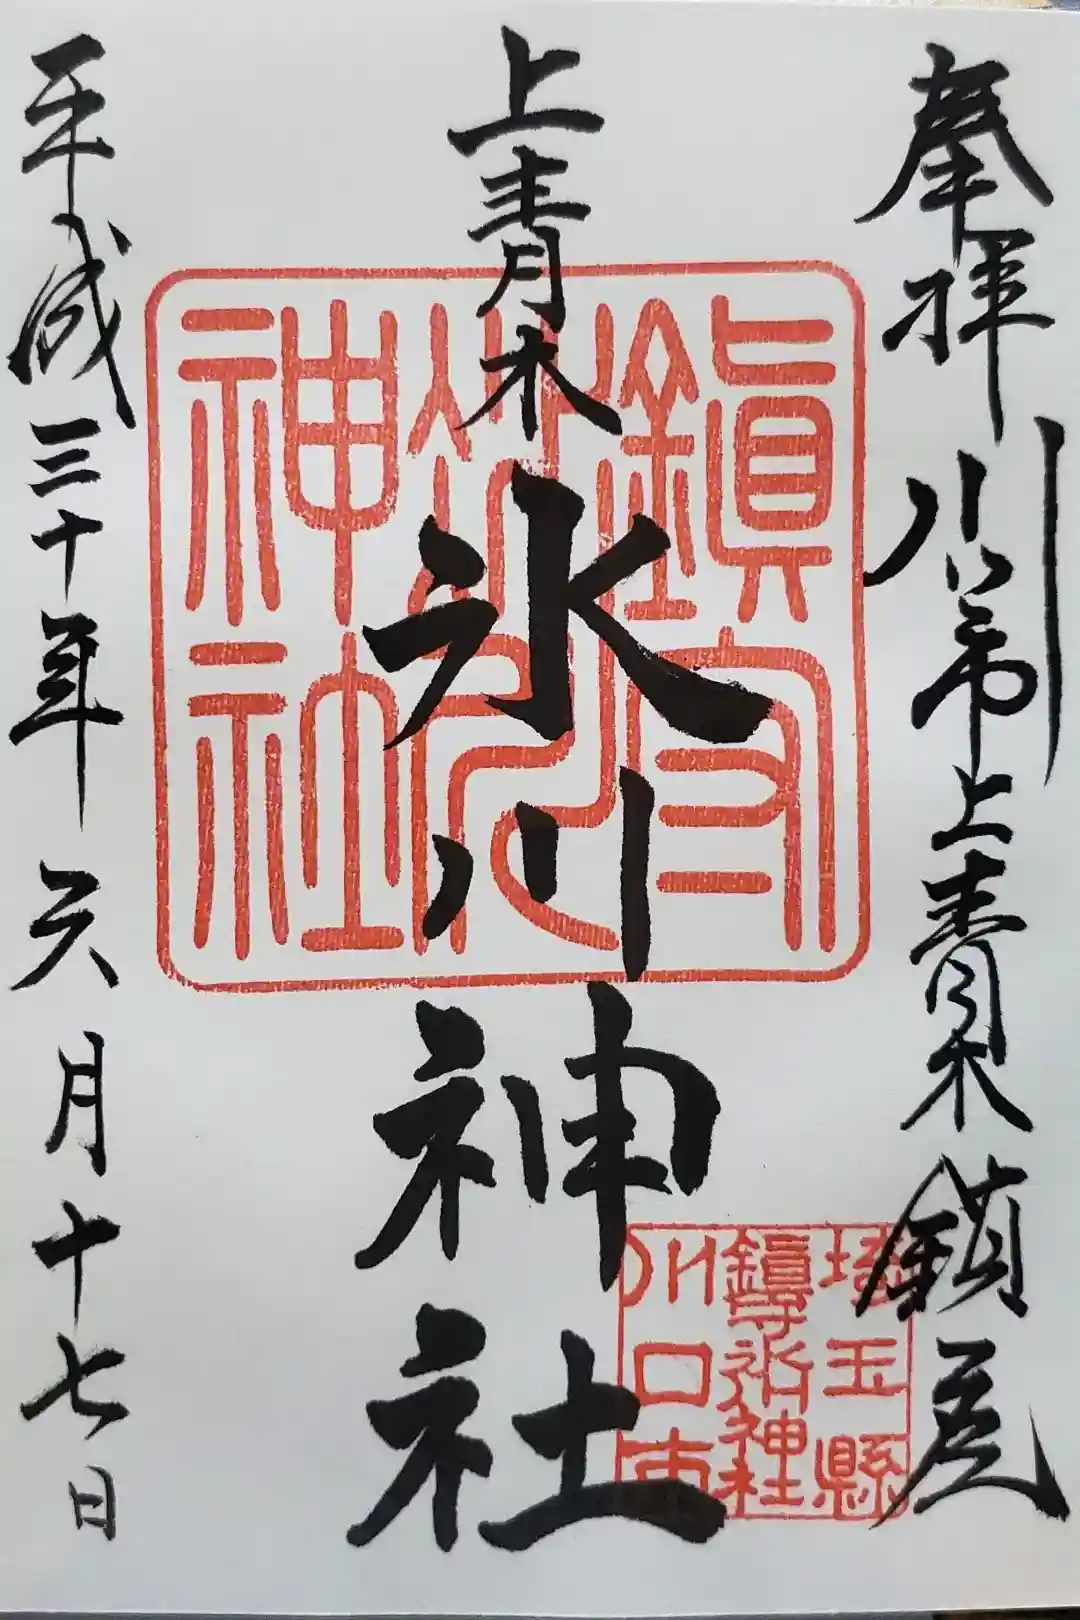 奉拝 川口市上青木 鎮座
上青木
氷川神社
平成三十年六月十七日
鎮守
氷川
神社
埼玉縣
鎮守氷川神社
川口市